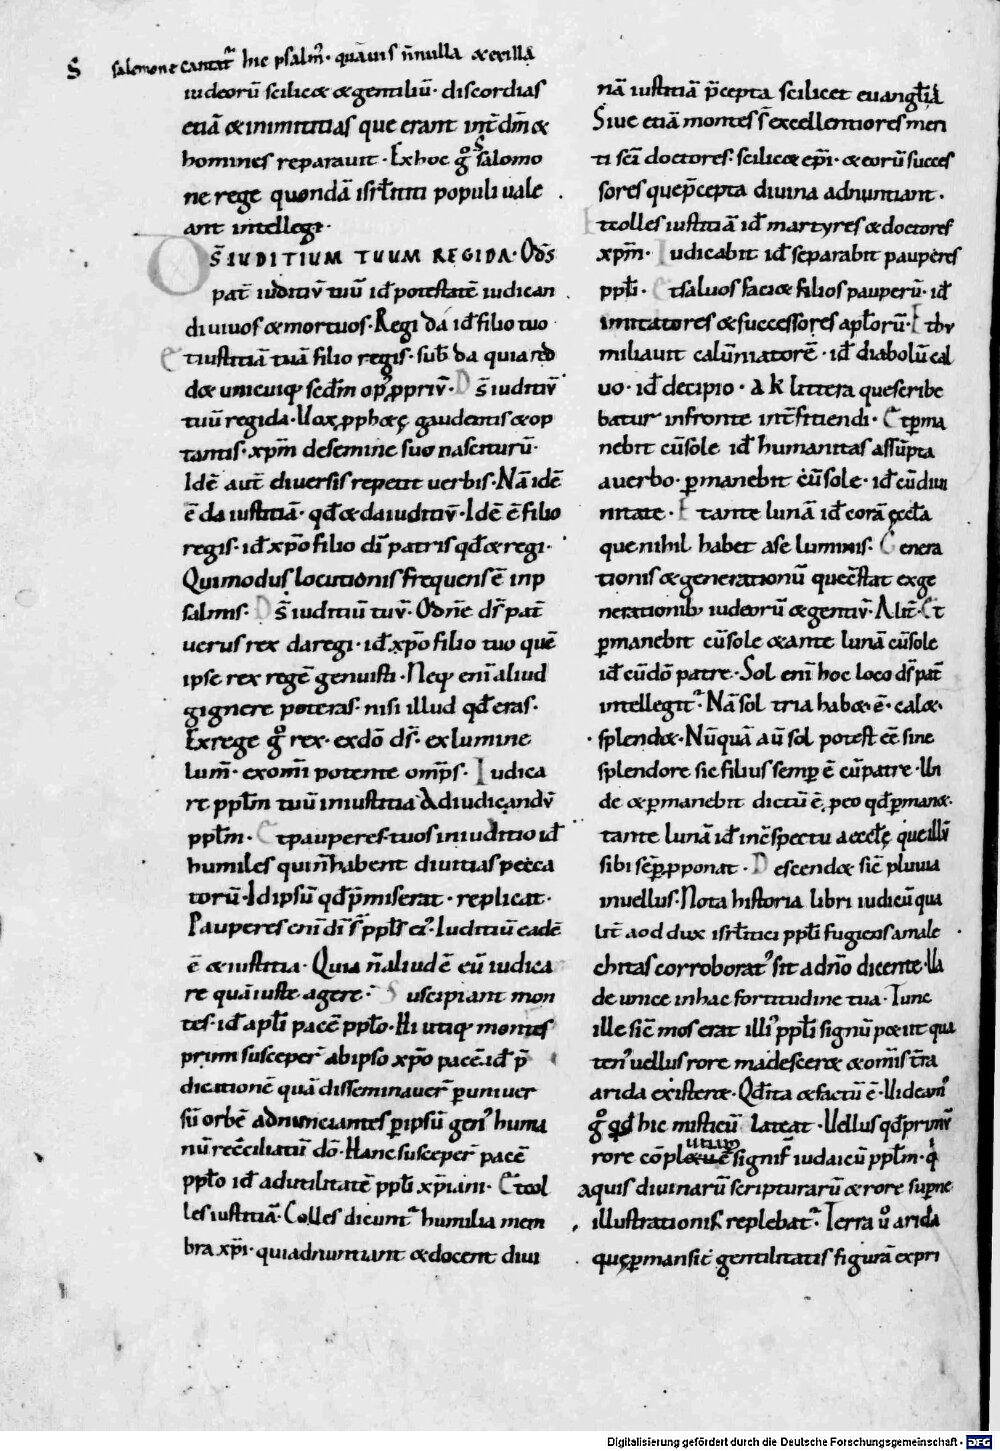 S salomone cantat᷑ hic psalm̄· quāuis n̄nulla & exilla
iudeorū scilic& & gentiliū· discordias
etiā & inimititias que erant int̄ dm̄ &
homines reparauit· Ex hoc gͦ salomo
ne rege quondā isrl̄itici populi uale
ant intellegi·
DS̄ IUDITIUM TUUM REGI DA· O ds̄
pat̄ iuditiū tuū id̄ potestatē iudican
di uiuos & mortuos· Regi da id̄ filio tuo
Et iustitiā tuā filio regis· sub̄ da quia red
d& unicuiq; scdm̄ op᷒ ppriū· Ds̄ iuditiū
tuū regi da· Uox pph&ę gaudentis & op
tantis· xpm̄ de semine suo nasciturū·
Idē aut̄ diuersis repetit uerbis· Nā idē
ē da iustitiā· qd̄ & da iuditiū· Idē ē filio
regis· id̄ xp̄o filio dī patris qd̄ & regi·
Qui modus locutionis frequens ē in p
salmis· Ds̄ iuditiū tuū· O dn̄e ds̄ pat̄
uerus rex da regi· id̄ xp̄o filio tuo quē
ipse rex regē genuisti· Neq; enī aliud
gignere poteras· nisi illud qd̄ eras·
Ex rege gͦ rex· ex dō ds̄· ex lumine
lum̄· ex omī potente omp̄s· Iudica
re ppl̄m tuū in iustitia Adiudicandū
ppl̄m· Et pauperes tuos in iuditio id̄
humiles qui n̄ habent diuitias pecca
torū· Id ipsū qd̄ p̄miserat· replicat·
Pauperes enī dī s̄ ppl̄s ei᷒· Iuditiū eadē
ē & iustitia· Quia n̄ aliud ē eū iudica
re quā iuste agere· Suscipiant mon
tes· id̄ apl̄i pacē ppl̄o· Hi utiq; montes
primi susceper̄ ab ipso xp̄o pacē id̄ p̄
dicationē quā disseminauer̄ p uniuer
sū orbē adnunciantes p ipsū gen᷒ huma
nū recc̄iliatū dō· Hanc susceper̄ pacē
ppl̄o id̄ ad utilitatē ppl̄i xp̄iani· Et col
les iustitiā· Colles dicunt᷑ humilia mem
bra xp̄i· qui adnuntiant & docent diui
nā iustitiā p̄cepta scilicet euangl̄ia
Siue etiā montes s̄ excellentiores men
ti scī doctores· scilic& epī· & eorū succes
sores que p̄cepta diuina adnuntiant·
Et colles iustitiā id̄ martyres & doctores
xpm̄· Iudicabit id̄ separabit pauperes
ppl̄i· Et saluos faci& filios pauperū· id̄
imitatores & successores apl̄orū· Et hu
miliauit calūniatorē· id̄ diabolū cal
uo· id̄ decipio· a k littera que scribe
batur in fronte int̄ficiendi· Et pma
nebit cū sole id̄ humanitas assūpta
a uerbo· pmanebit cū sole· id̄ cū diui
nitate· Et ante lunā id̄ corā ęccl̄a
que nihil habet a se luminis· Genera
tionis & generationū que cōstat ex ge
nerationib; iudeorū & gentiū· Alit̄· Et
pmanebit cū sole & ante lunā cū sole
id̄ cū dō patre· Sol enī hoc loco ds̄ pat̄
intellegit᷑· Nā sol tria hab&· ē· cal&·
splend&· Nūquā aū sol potest eē sine
splendore sic filius semp ē cū patre· Un
de & pmanebit dictū ē· p eo qd̄ pman&·
& ante lunā id̄ in cōspectu ęccl̄ę que illū
sibi semp pponat· Descend& sic̄ pluuia
in uellus· Nota historia libri iudicū qua
lit̄ aod dux isrl̄itici ppl̄i fugiens amale
chitas corroborat᷒ sit a dn̄o dicente· Ua
de unice in hac fortitudine tua· Tunc
ille sic̄ mos erat illi᷒ ppl̄i signū p&iit qua
ten᷒ uellus rore madescer& & omīs tr̄a
arida exister&· Qd̄ ita & factū ē· Uideam᷒
gͦ qd̄ hic misticū lateat· Uellus qd̄ primū
rore cōpletū ē signif̄ iudaicū ppl̄m· qͥ
aquis diuinarū scripturarū & rore supne
illustrationis replebat᷑· Terra uͦ arida
quę pmansit gentilitatis figurā expri
Digitalisierung gefördert durch die Deutsche Forschungsgemeinschaft - DFG